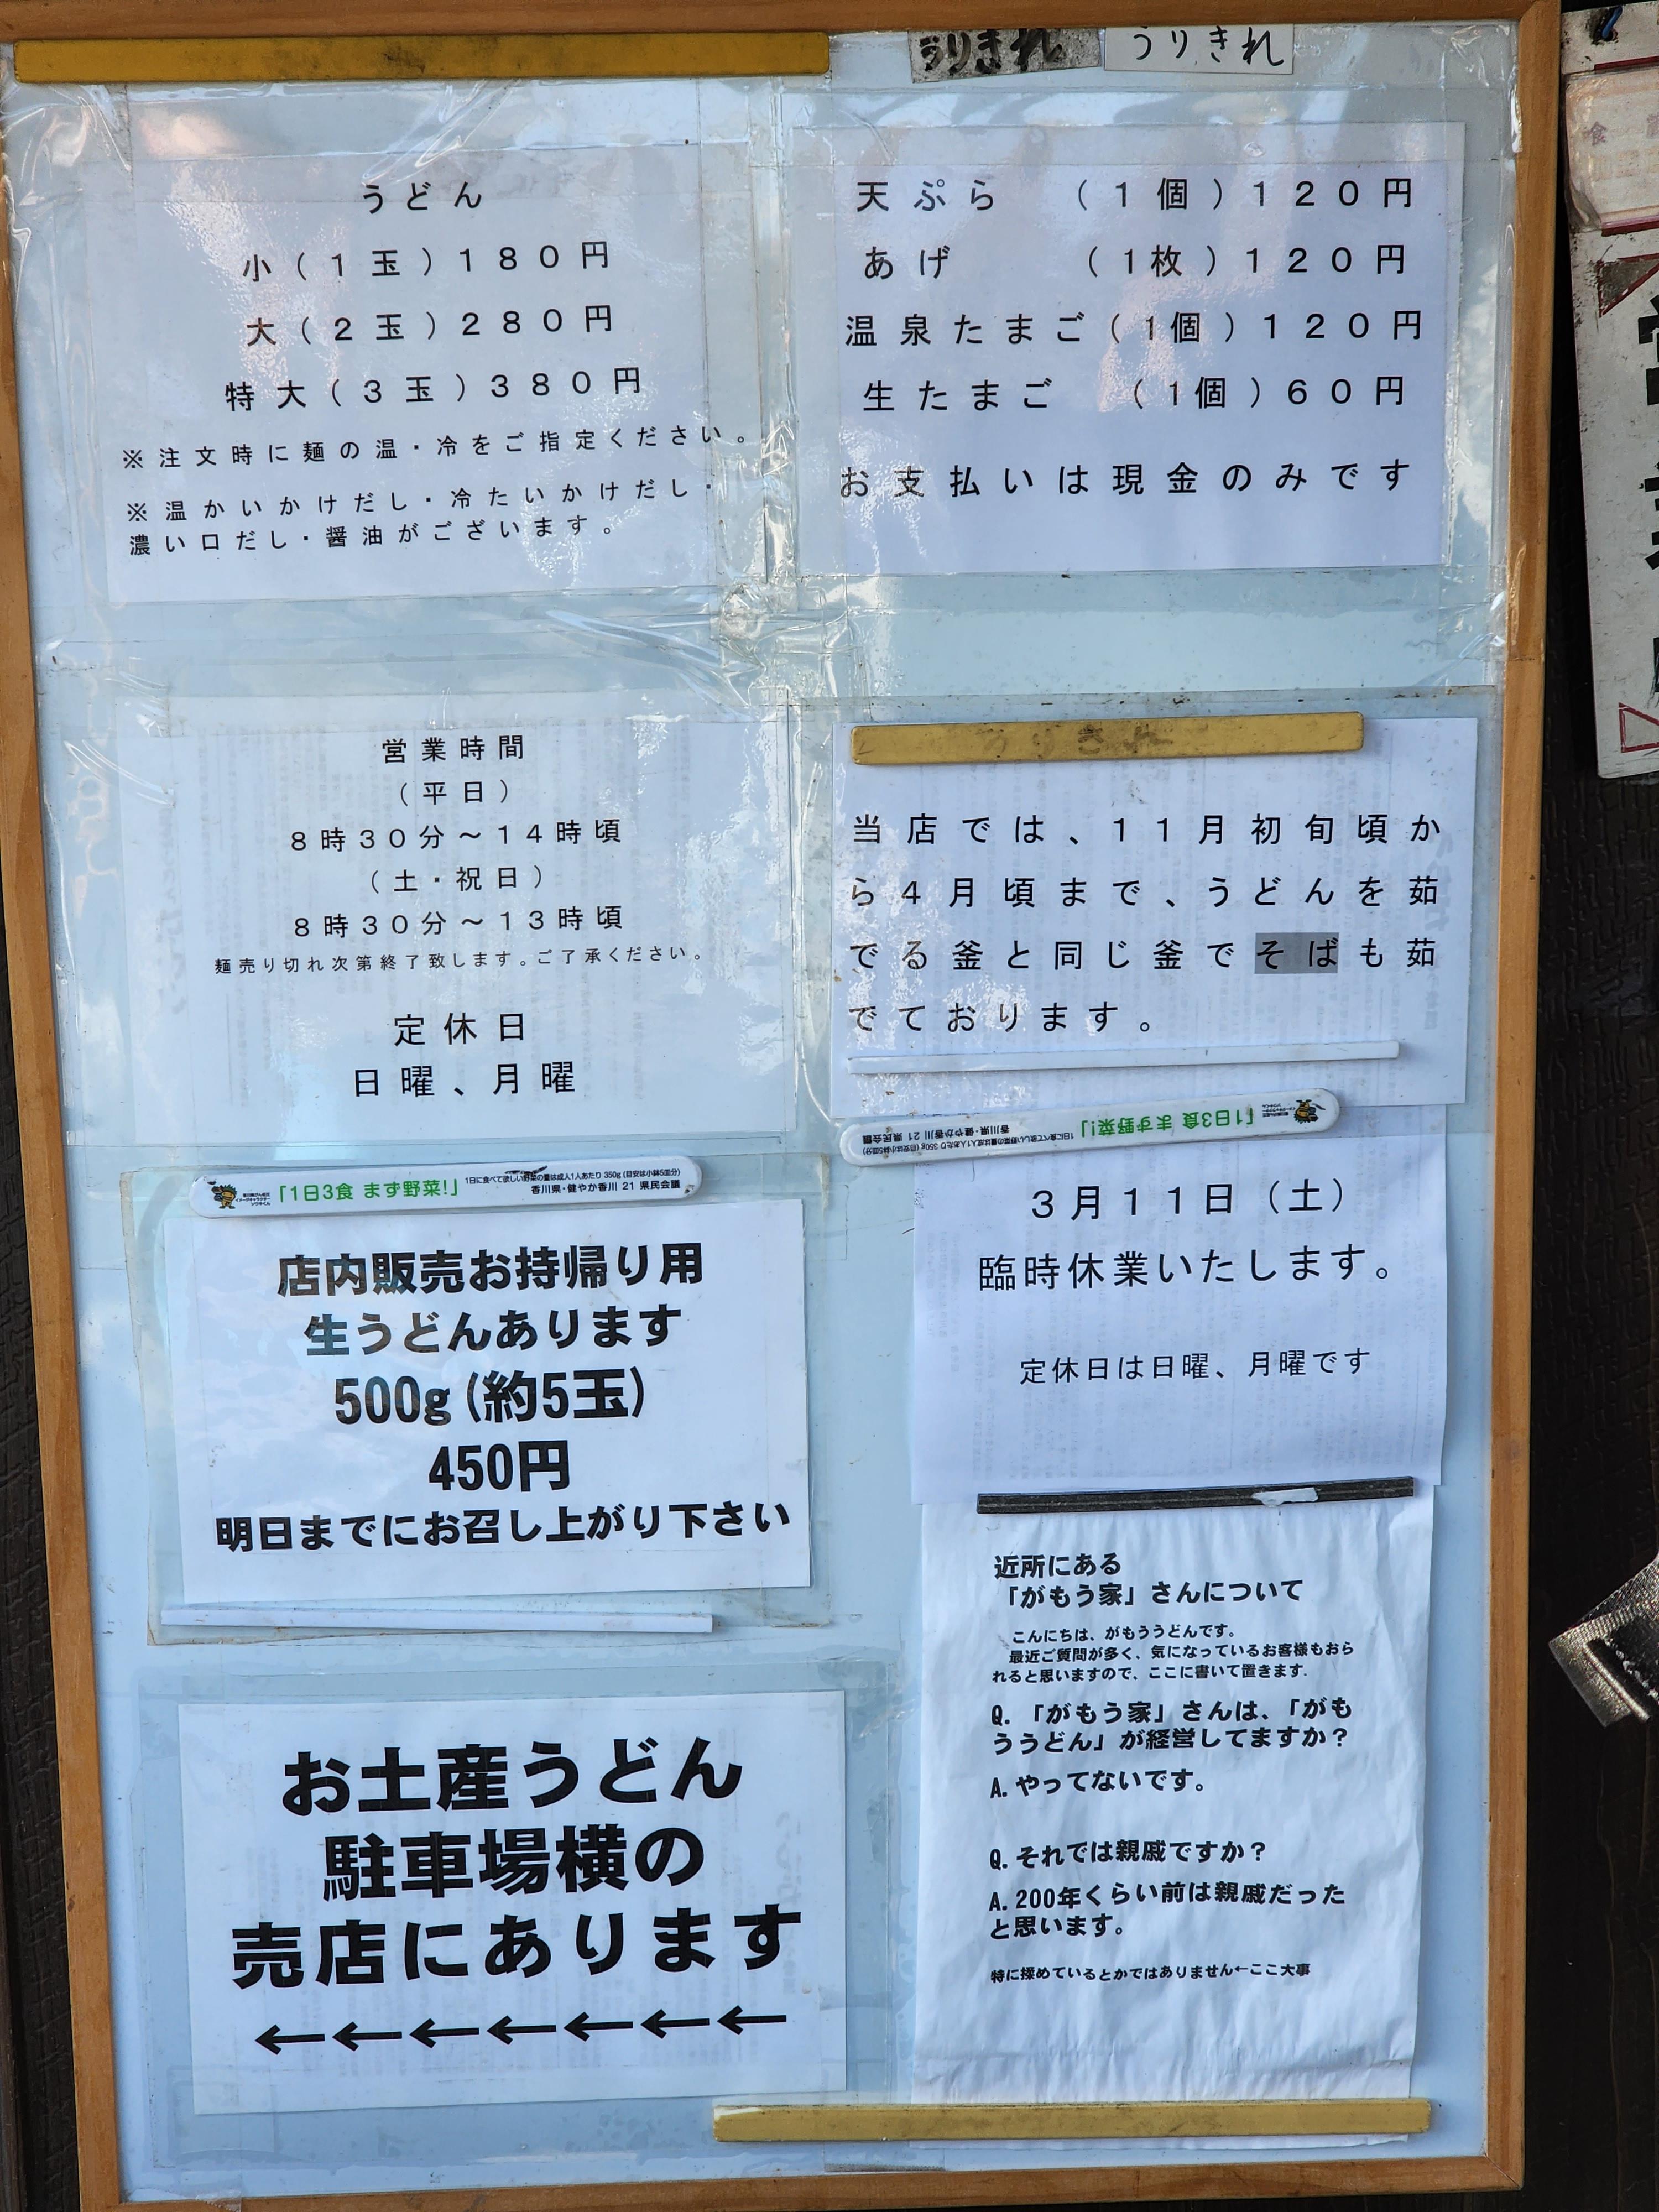 うりきれ
うりきれ
うどん
小(1玉)180円
大(2玉)280円
特大(3玉)380円
※注文時に麺の温・冷をご指定ください。
※温かいかけだし・冷たいかけだし・
濃い口だし・醤油がございます。
天ぷら (1個)120円
あげ (1枚)120円
温泉たまご(1個)120円
生たまご (1個)60円
お支払いは現金のみです
営業時間
(平日)
8時30分~14時頃
(土・祝日)
8時30分~13時頃
麺売り切れ次第終了致します。ご了承ください。
定休日
日曜、月曜
当店では、11月初旬頃か
ら4月頃まで、うどんを茹
でる釜と同じ釜でそばも茹
でております。
「1日3食 まず野菜!」
1日に食べて欲しい野菜の量は成人1人あたり350g(目安は小鉢5皿分)
香川県・健やか香川21県民会議
3月11日(土)
臨時休業いたします。
定休日は日曜、月曜です
「1日3食 まず野菜!」
1日に食べて欲しい野菜の量は成人1人あたり350g(目安は小鉢5皿分)
香川県・健やか香川21県民会議
店内販売お持帰り用
生うどんあります
500g(約5玉)
450円
明日までにお召し上がり下さい
近所にある
「がもう家」さんについて
こんにちは、がもううどんです。
最近ご質問が多く、気になっているお客様もおら
れると思いますので、ここに書いて置きます.
Q.「がもう家」さんは、「がも
ううどん」が経営してますか?
A.やってないです。
Q.それでは親戚ですか?
A.200年くらい前は親戚だった
と思います。
特に揉めているとかではありません←ここ大事
お土産うどん
駐車場横の
売店にあります
←←←←←←←